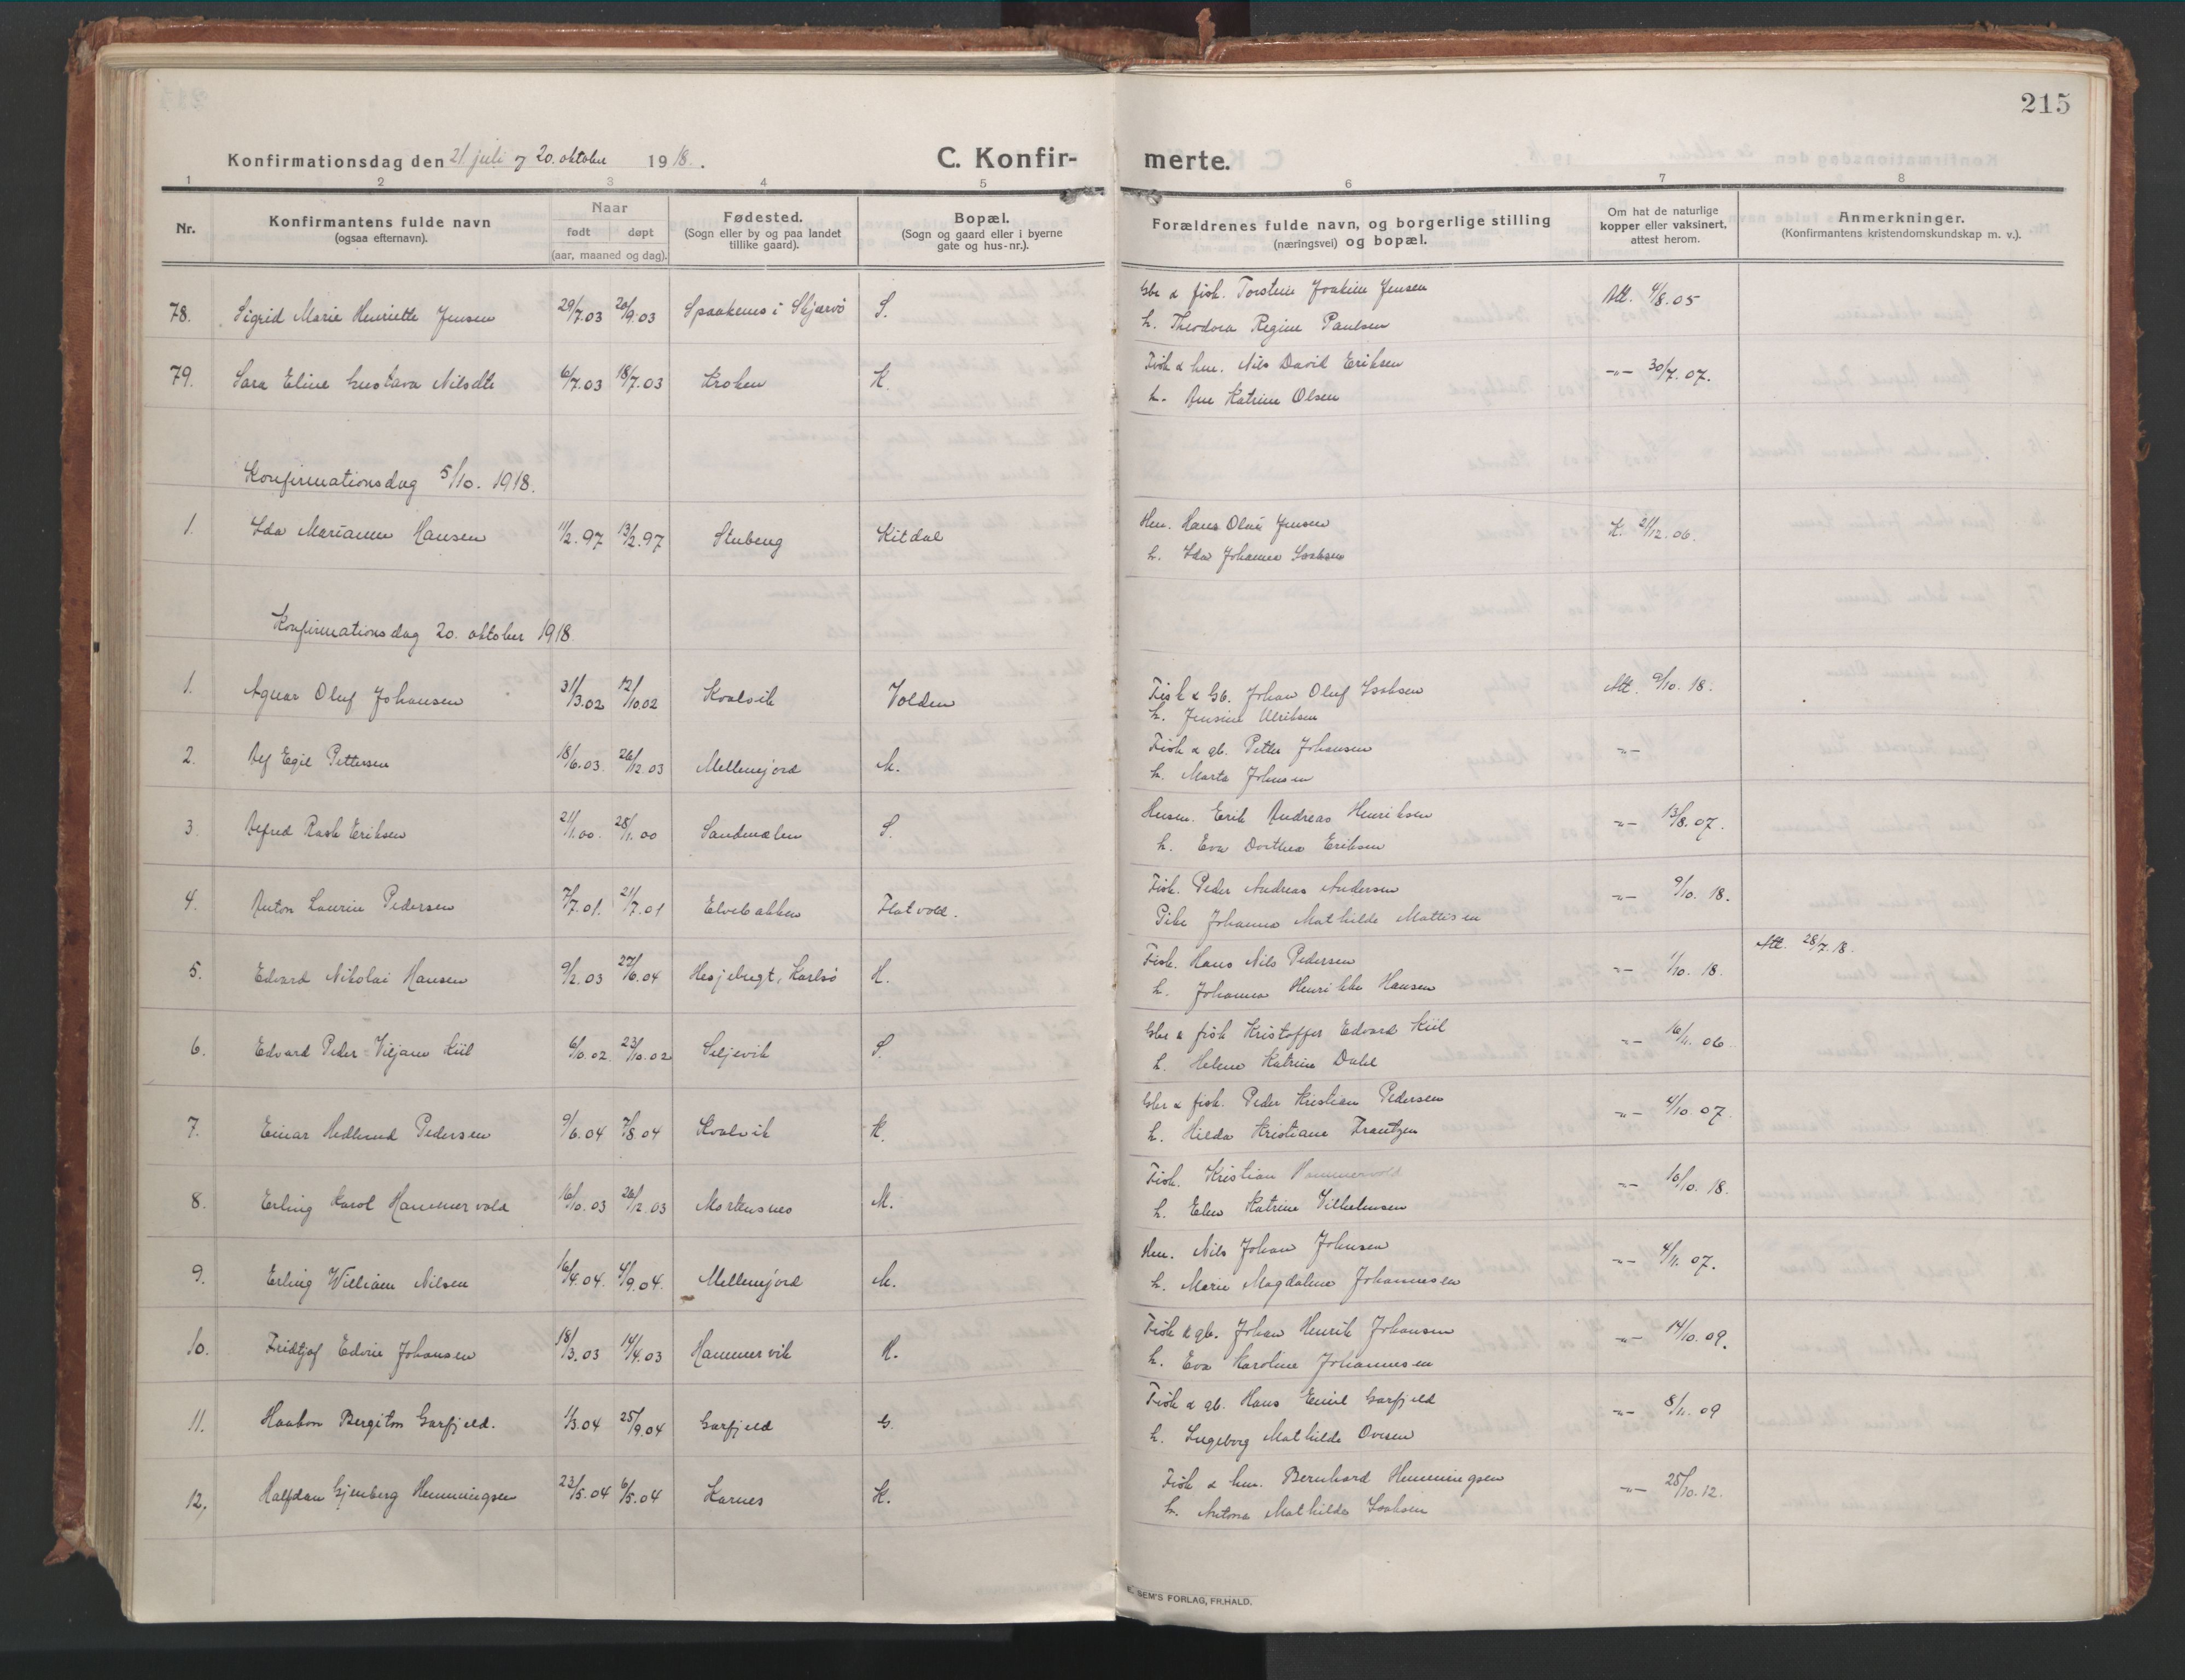 215
Konfirmationsdag den 21. juli og 20. oktober 1918. C. Konfir- merte.
1 2 3 4 5 6 7 8
Nr. Konfirmantens fulde navn (ogsaa efternavn). Naar født døpt (aar, maaned og dag). Fødested. (Sogn eller by og paa landet tillike gaard). Bopæl. (Sogn og gaard eller i byerne gate og hus-nr.). Forældrenes fulde navn, og borgerlige stilling (næringsvei) og bopæl. Om hat de naturlige kopper eller vaksinert, attest herom. Anmerkninger. (Konfirmantens kristendomskundskap m. v.).
78. Sigrid Marie Henriette Jensen 29/7.03 20/9.03 Spaakenes i Skjærvø S. Gbr & fisk. Torstein Joakim Jensen Att. 4/8.05
h. Theodora Regine Paulsen
79. Sara Eline Gustava Nilsdtr 6/7.03 18/7.03 Kroken K. Fisk & hm. Nils David Eriksen -"- 30/7.07.
h. Ane Katrine Olsen
Konfirmationsdag 5/10. 1918.
1. Ida Marianne Hansen 11/2.97 13/2.97 Stubeng Kitdal Hm. Hans Olai Jensen K. 21/12.06.
h. Ida Johanna Isaksen
Konfirmationsdag 20. oktober 1918
1. Agnar Oluf Johansen 31/3.02 12/10.02 Kvalvik Volden Fisk & Gb. Johan Oluf Isaksen Att. 9/10.18.
h. Jensine Ulriksen
2. Alf Egil Pettersen 18/6.03. 26/12.03 Mellemjord M. Fisk & gb. Petter Johansen -"-
h. Marta Johnsen
3. Alfred Rask Eriksen 21/1.00. 28/1.00 Sandmælen S. Husm. Erik Andreas Henriksen -"- 13/8.07.
h. Eva Dorthea Eriksen
4. Anton Laurin Pedersen 7/7.01. 21/7.01 Elvebakken Flatvold. Fisk. Peder Andreas Andersen -"- 9/10.18.
Pike Johanna Mathilde Mattisen
5. Edvard Nikolai Hansen 9/2.03 27/6.04 Hesjebugt, Karlsø H. Fisk. Hans Nils Pedersen -"- 1/10.18. Att. 28/7.18.
h. Johanna Henrikke Hansen
6. Edvard Peder Viljam Kiil 6/10.02. 23/10.02 Seljevik S. Gbr & fisk Kristoffer Edvard Kiil -"- 16/11.06
h. Helene Katrine Dahl
7. Einar Hedlund Pedersen 9/6.04 7/8.04 Kvalvik K. Gbr & fisk. Peder Kristian Pedersen -"- 4/10.07.
h. Hilda Kristiane Frantzen
8. Erling Karol Hammervold 16/10.03 26/12.03 Mortensnes M. Fisk. Kristian Hammervold -"- 16/10.18.
h. Elen Katrine Vilhelmsen
9. Erling William Nilsen 16/4.04. 4/9.04. Mellemjord M. Hm. Nils Johan Johnsen -"- 4/11.07.
h. Marie Magdalena Johannesen
10. Fridtjof Edvin Johansen 18/3.03 14/4.03 Hammervik H. Fisk & gb. Johan Henrik Johansen -"- 14/10.09.
h. Eva Karoline Johannesen
11. Haakon Bergiton Garfjeld. 1/3.04 25/9.04 Garfjeld G. Fisk & gb. Hans Emil Garfjeld -"- 8/11.09
h. Ingeborg Mathilde Ovesen
12, Halfdan Gjenberg Hemmingsen 23/5.04 6/5.04 Karnes K. Fisk & hm. Bernhard Hemmingsen -"- 25/10.12.
h. Antona Mathilde Isaksen
E. SEM'S FORLAG, FR.HALD.